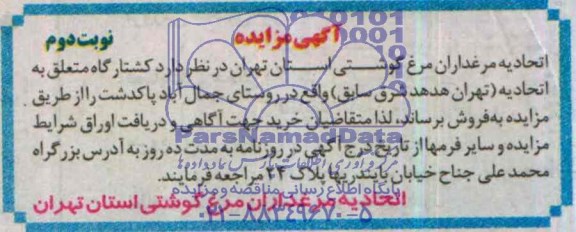 آگهی مزایده
نوبت دوم
اتحادیه مرغداران مرغ گوشتی استان تهران در نظر دارد کشتارگاه متعلق به
اتحادیه (تهران هدهد شرق سابق) واقع در روستای جمال آباد پاکدشت را از طریق
مزایده به فروش برساند، لذا متقاضیان خرید جهت آگاهی و دریافت اوراق شرایط
مزایده و سایر فرمها از تاریخ درج آگهی در روزنامه به مدت ده روز به آدرس بزرگراه
محمد علی جناح خیابان پاینده پلاک ۲۴ مراجعه فرمایند.
اتحادیه مرغداران مرغ گوشتی استان تهران
ParsNamadData
پایگاه اطلاع رسانی مناقصه و مزایده
۰۲۱-۸۸۳۴۹۶۷۰-۵